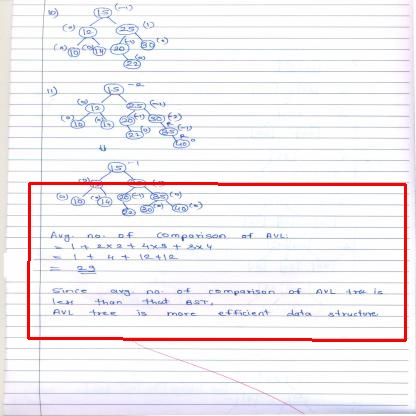 10) 15 (-1)
(0) 12 25 (1)
(0) 10 (0) 14 20 (-1) 30 (0)
22 (0)
11) 15 -2
(0) 12 25 (-1)
(0) 10 (0) 14 20 (-1) 30 (-2)
22 (0) 35 (-1)
R
40 0
15 -1
(0) 10 14 (0) 20 (-1) 35 (0)
22 30 (0) 40 (0)
Avg. no. of comparison of AVL
= 1 + 2x2 + 4x3 + 3x4
= 1 + 4 + 12+12
= 29
Since avg. no. of comparison of AVL tree is
less than that BST,
AVL tree is more efficient data structure